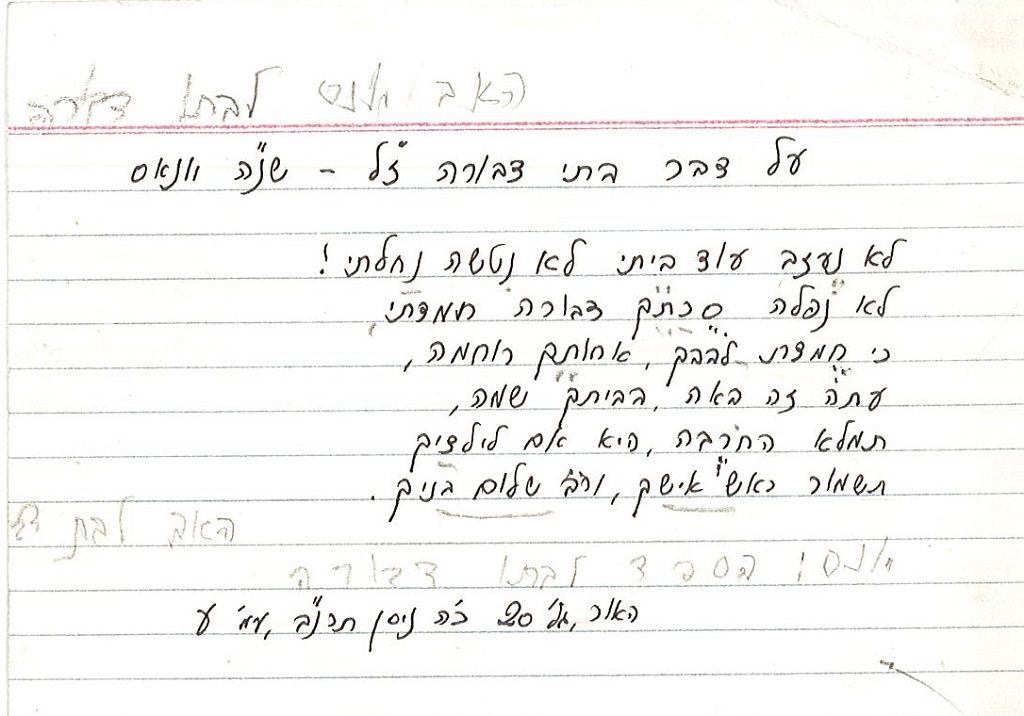 האב יונס לבתו דבורה
על דבר בתי דבורה ז"ל - שנ"ה יונאס
לא נעזב עוד ביתי לא נטשה נחלתי!
לא נפלה סכתך דבורה חמדתי,
כי חמדת לבבך, אחותך רוחמה,
עתה זה באה, בביתך שמה,
תמלא החרבה, היא אם לילדיך
תשמור ראש אישך, ורב שלום בניך.
האב לבת
יונס: הספד לבתו דבורה
האור, גל' 20 כ'ה ניסן תרנ"ב, עמ' ע